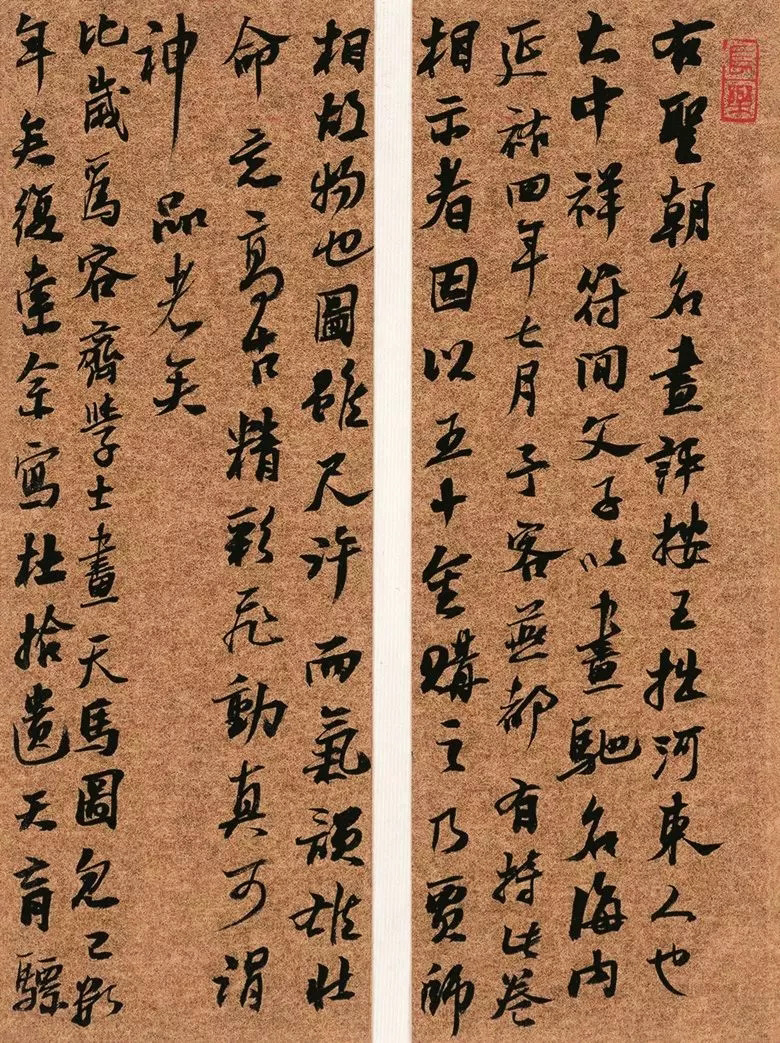 右聖朝名畫評按王拙河東人也
大中祥符間父子以畫馳名海内
延祐四年七月予客燕都有持此卷
相示者因以五十金購之乃賈師
相故物也圖雖尺許而氣韻雄壯
命意高古精彩飛動真可謂
神品老矣
比歲爲容齋學士畫天馬圖忽已數
年矣復索余寫杜拾遺天育驃